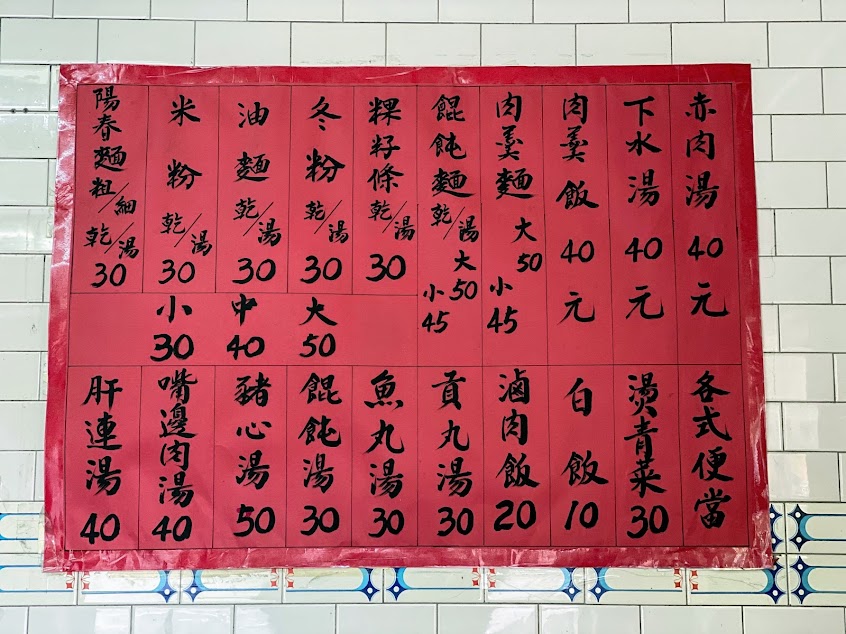 赤肉湯 40元
下水湯 40元
肉羹飯 40元
肉羹麵 大50 小45
餛飩麵 乾/湯 大50 小45
粿籽條 乾/湯 30
冬粉 乾/湯 30
油麵 乾/湯 30
米粉 乾/湯 30
陽春麵 粗/細 乾/湯 30
大50
中40
小30
各式便當
燙青菜 30
白飯 10
滷肉飯 20
貢丸湯 30
魚丸湯 30
餛飩湯 30
豬心湯 50
嘴邊肉湯 40
肝連湯 40